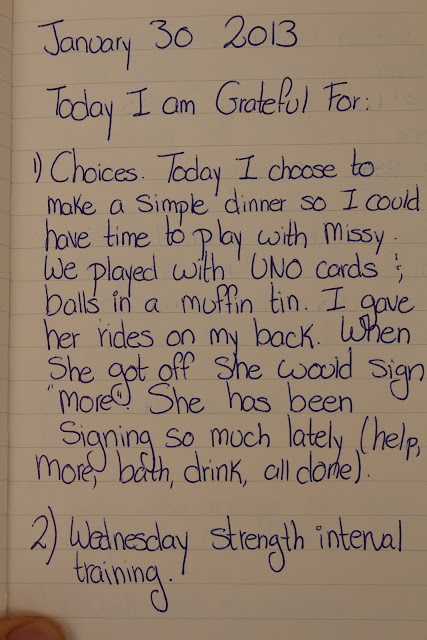 January 30 2013
Today I am Grateful For:
1) Choices. Today I choose to
make a simple dinner so I could
have time to play with Missy.
We played with UNO cards &
balls in a muffin tin. I gave
her rides on my back. When
She got off She would sign
"more". She has been
Signing so much lately (help,
more, bath, drink, all done).
2) Wednesday strength interval
training.